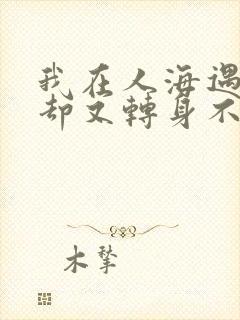 我在人海遇
却又轉身不
木犂